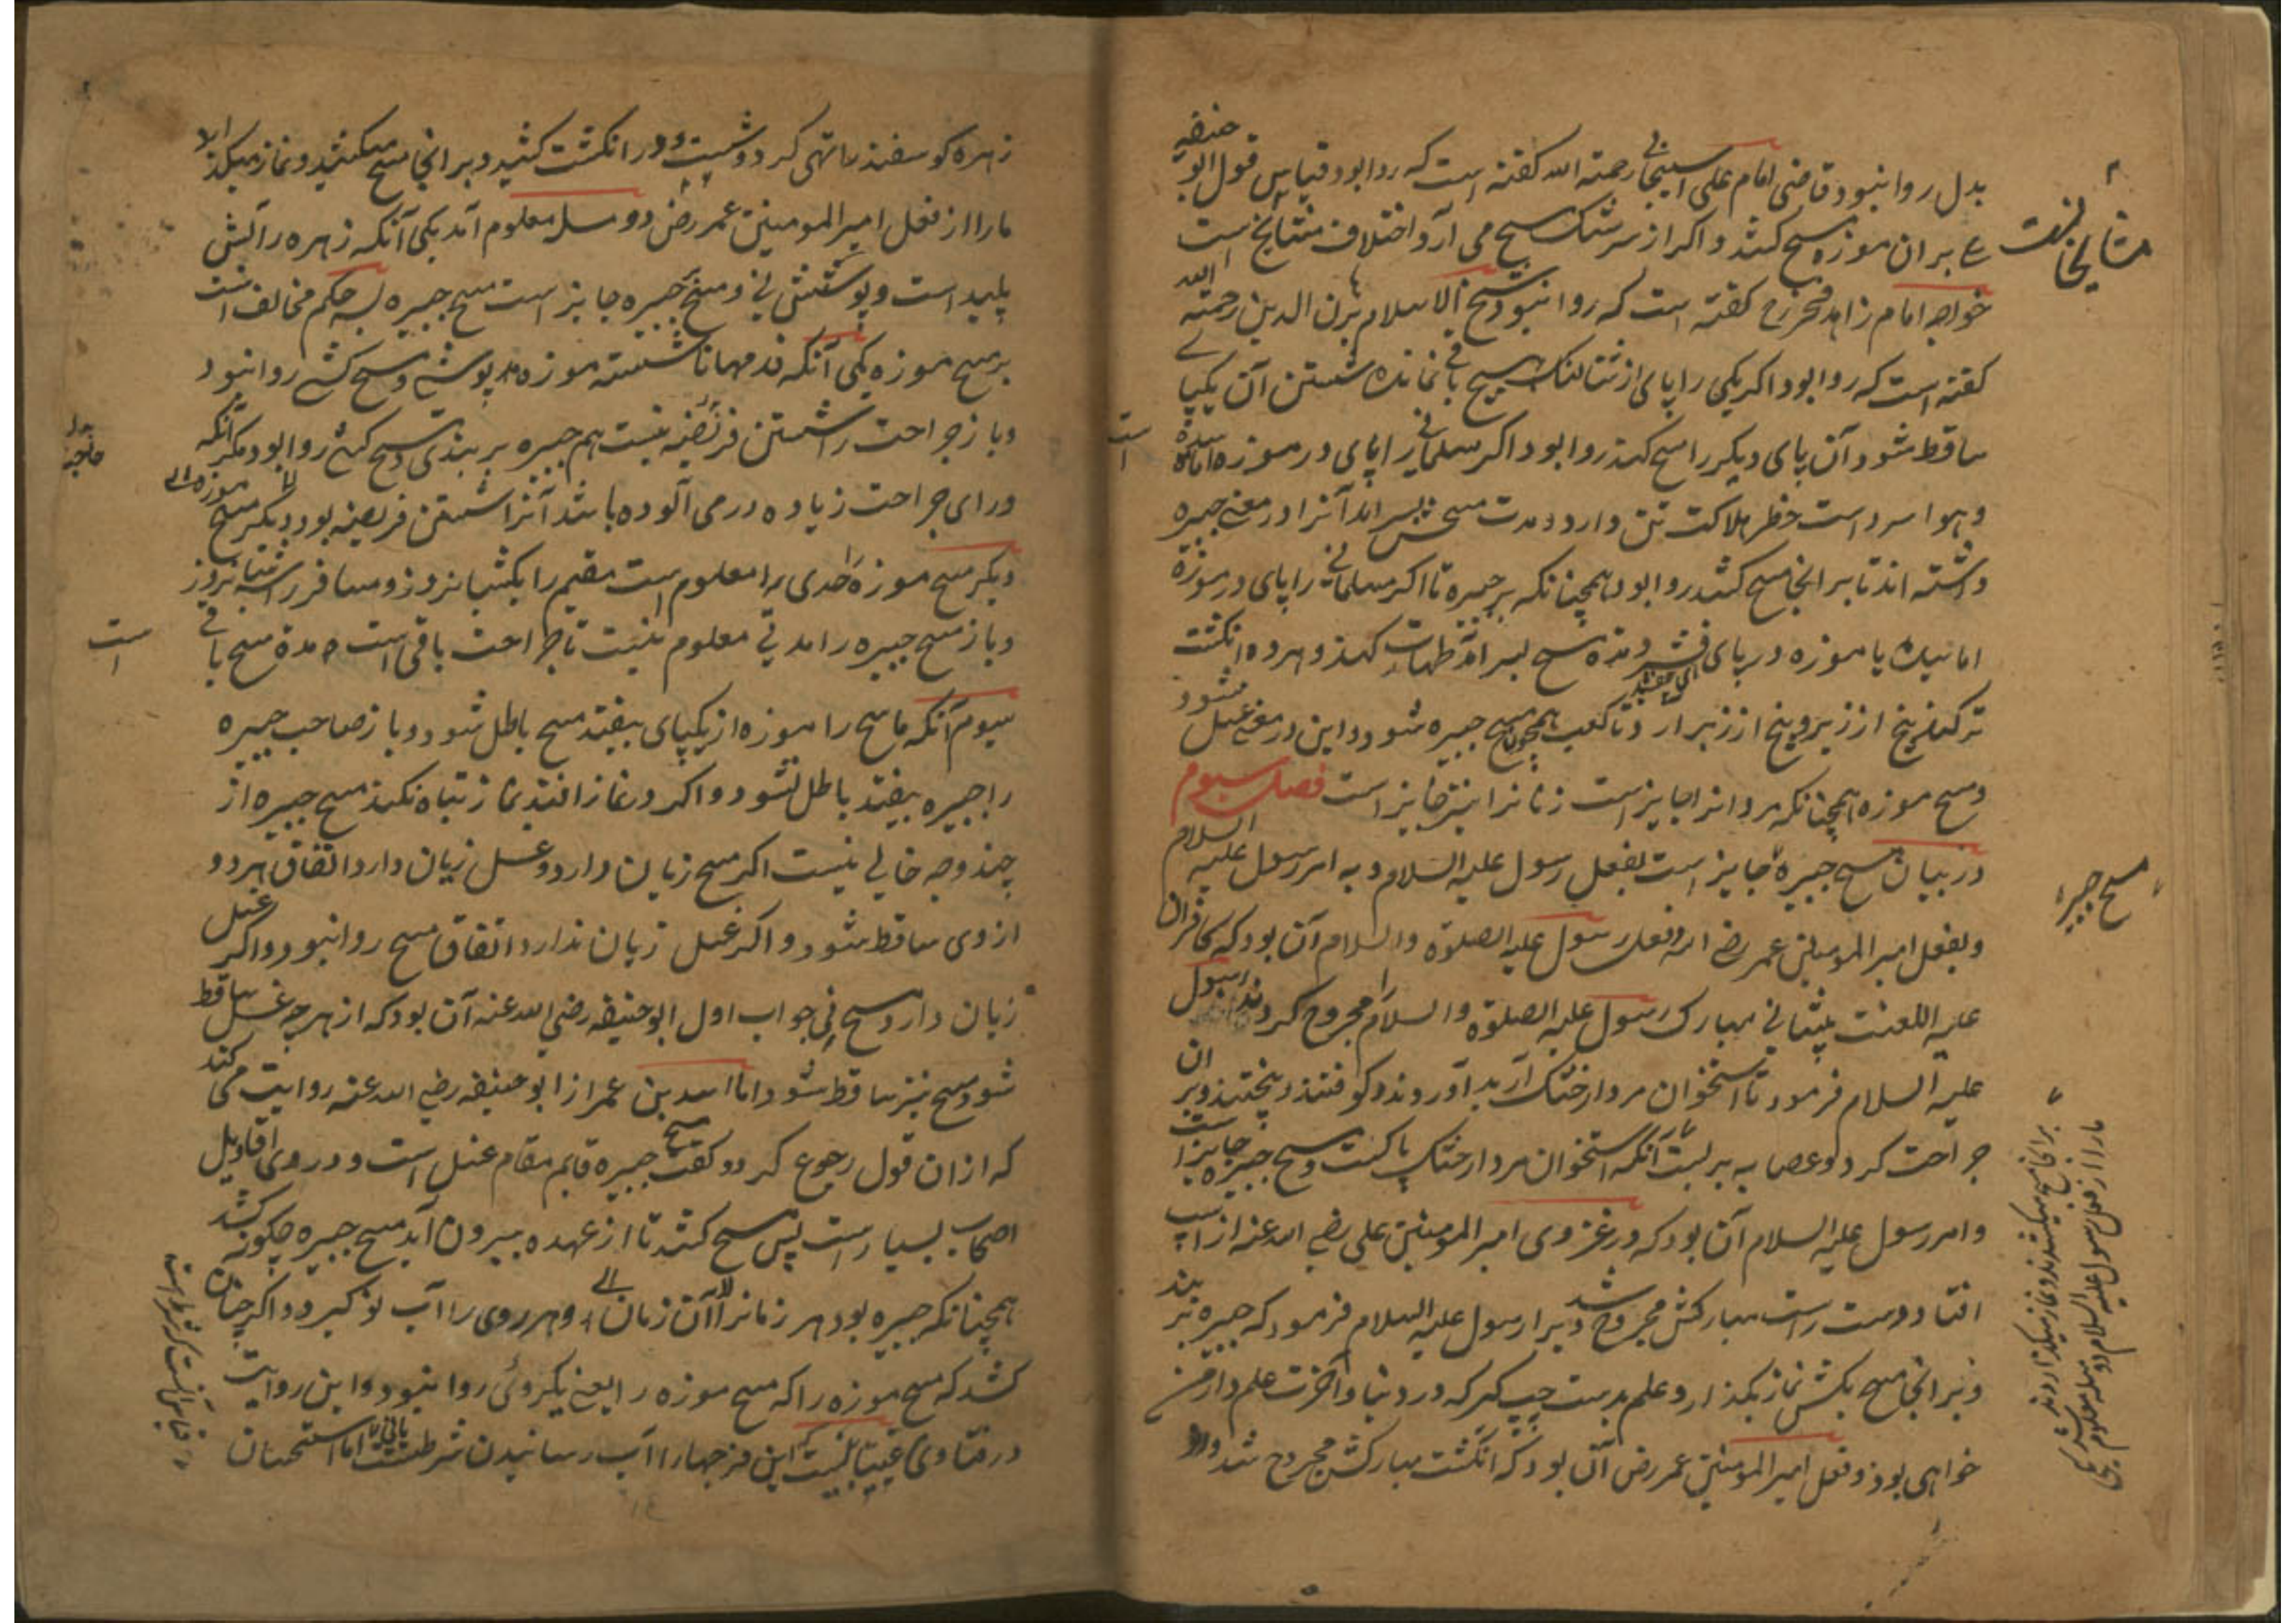 بدل روا نبود قاضی امام علی اسبیجابی رحمته الله کفته است که روا بود قیاس قول ابو حنیفه
بر ان موزه مسح کشد و اکر از سرشک مسح می آرد اختلاف مشایخ است
خواجه امام زاهد فخر رح کفته است که روا نبود شیخ الاسلام برهان الدین رحمته الله
کفته است که روا بود اکر یکی را پای از شتالنک هیچ باقی نمانده شستن آن یکپای
ساقط شود آن پای دیکر را مسح کند روا بود اکر مسلمانی را پای در موزه اماسیده
و هوا سرد است خطر هلاکت تن دارد و مدت مسحش بسر امد آنرا در معنی جبیره
داشته اند تا بر انجا مسح کشد روا بود همچنانکه بر جبیره تا اکر مسلمانی را پای در موزه
اماسیده یا موزه در پای و مدة مسح بسر امد طهارت کند و هر ده انکشت
تر کند پنج از زیر و پنج از زبر ارد تا کعب همچون مسح جبیره شود و این در معنی غسل شود
و مسح موزه همچنانکه مردانرا جایز است زنانرا نیز جایز است فصل سیوم
در بیان مسح جبیره جایز است بفعل رسول علیه السلام و به امر رسول علیه السلام
و بفعل امیر المومنین عمر رضی الله و فعل رسول علیه الصلوة والسلام آن بود که کافران
علیه اللعنت پیشانی مبارک رسول علیه الصلوة والسلام را مجروح کردند رسول
علیه السلام فرمود تا استخوان مردار خشک آرید آوردند و کوفتند و پختند و بر ان
جراحت کرد و عصابه بر بست آنکه استخوان مردار خشک پاکست و مسح جبیره جایز است
و امر رسول علیه السلام آن بود که در غزوی امیر المومنین علی رضی الله عنه از اسپ
افتاد و دست راست مبارکش مجروح شد و برا رسول علیه السلام فرمود که جبیره بر بند
و بر انجا مسح بکش نماز بکذار و علم بدست چپ کیر که در دنیا و آخرت علم دار من
خواهی بود و فعل امیر المومنین عمر رض آن بود که انکشت مبارکش مجروح شد
مسح جبیره
بر انجا مسح میکشیدند و نماز میکذاردند
ما را از فعل رسول علیه السلام دو مسله معلوم شد یکی
زهره کوسفند را تهی کرد و شست و در انکشت کشید و بر انجا مسح میکشید و نماز میکذارد
ما را از فعل امیر المومنین عمر رض دو مسله معلوم آمد یکی آنکه زهره را آلش
پلید است و پوستش نی و مسح جبیره جایز است مسح جبیره به حکم مخالف است
بر مسح موزه یکی آنکه قدمها نا شسته موزه در پوشی و مسح کشی روا نبود
و باز جراحت را شستن فریضه نیست هم جبیره بر بندی و مسح کشی روا بود مکر آنکه
ورای جراحت زیاده درمی آلوده باشد آنرا شستن فریضه بود دیکر مسح
دیکر مسح موزه را حدی معلوم است مقیم را یکشبانروز و مسافر را سه شبانروز
و باز مسح جبیره را مدتی معلوم نیست تا جراحت باقی است مدة مسح باقی
است
سیوم آنکه ماسح را موزه از یکپای بیفتد مسح باطل شود و باز صاحب جبیره
را جبیره بیفتد باطل نشود و اکر در نماز افتد نماز تباه نکند مسح جبیره از
چند وجه خالی نیست اکر مسح زیان دارد و غسل زیان دارد اتفاق هر دو
از وی ساقط شود و اکر غسل زیان ندارد اتفاق مسح روا نبود و اکر غسل
زیان دارد مسح نی جواب اول ابو حنیفه رضی الله عنه آن بود که از هر چه غسل ساقط
شود مسح نیز ساقط شود اما اسد بن عمر از ابو حنیفه رضی الله عنه روایت می کند
که از ان قول رجوع کرد و کفت مسح جبیره قایم مقام غسل است و در وی اقاویل
اصحاب بسیار است پس مسح کشد تا از عهده بیرون آید مسح جبیره چکونه کشد
همچنانکه جبیره بود هر زمانرا آن زمان و هر روی را آب نو کیرد و اکر چنان
کشد که مسح موزه را که مسح موزه را یعنی یکروئی روا نبود و این روایت
در فتاوی غیاثیست که این درجها را آب رسانیدن شرطست اما استحسان